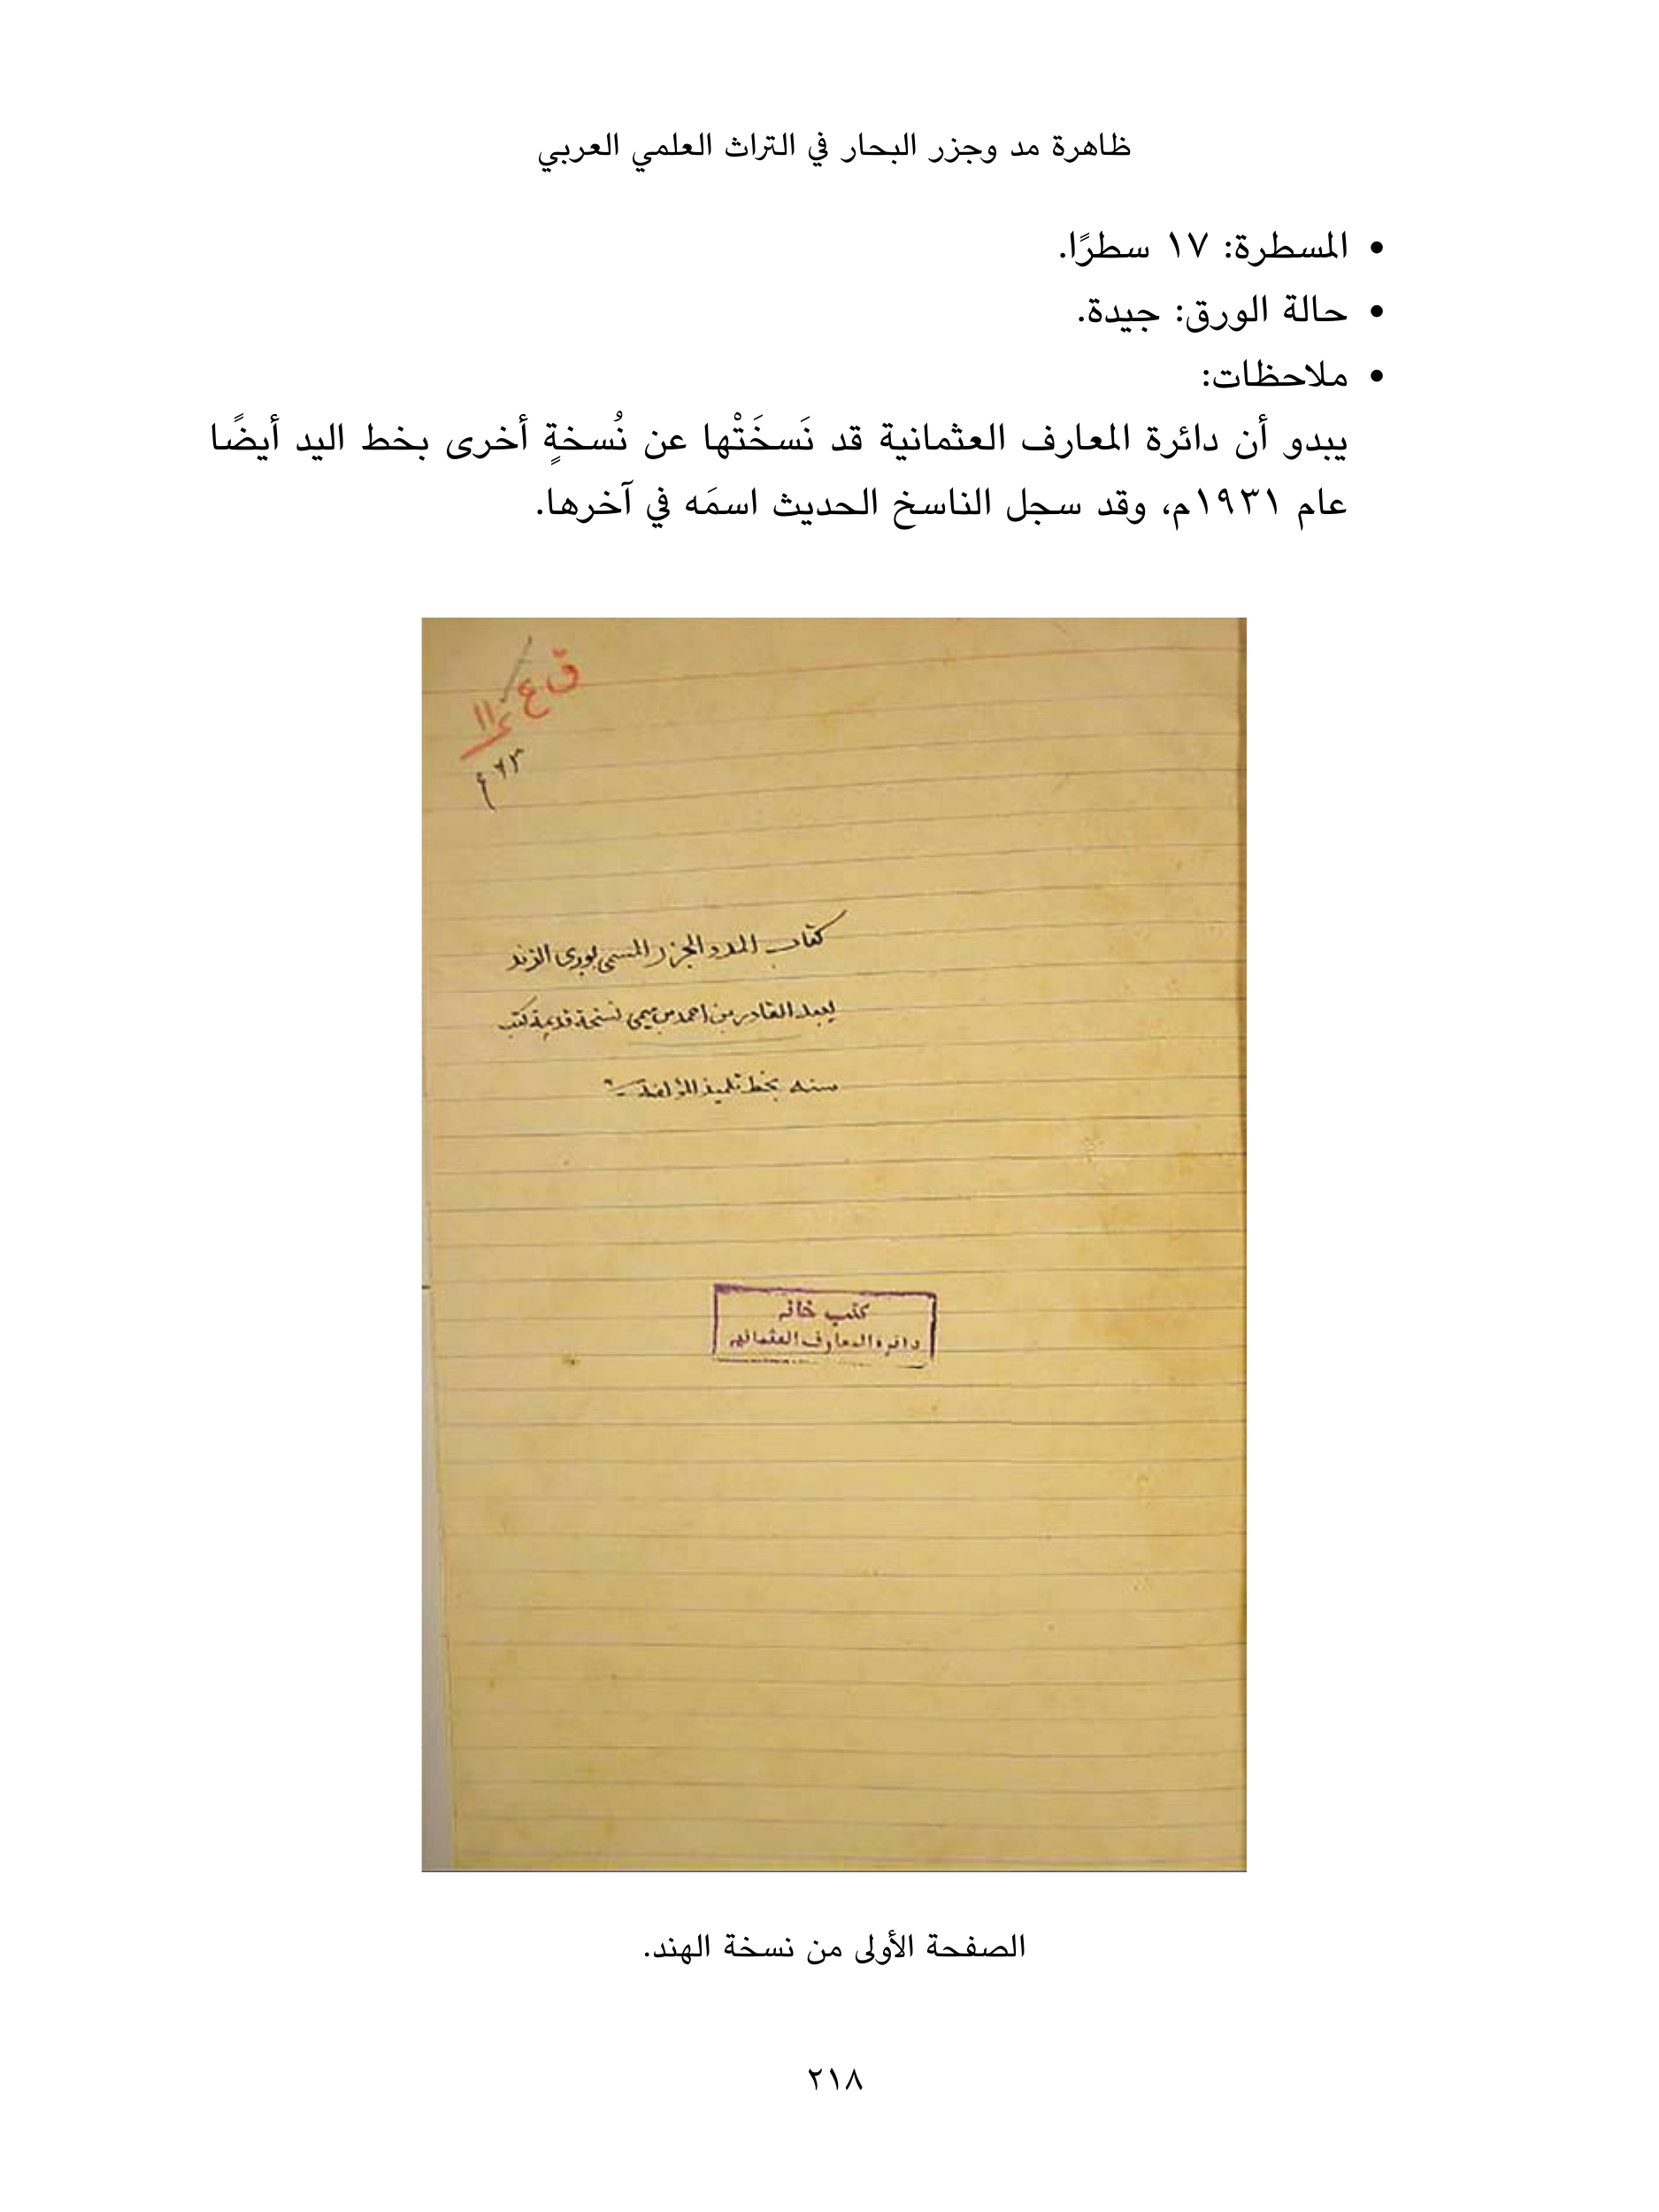 ظاهرة مد وجزر البحار في التراث العلمي العربي
• المسطرة: ١٧ سطرًا.
• حالة الورق: جيدة.
• ملاحظات:
يبدو أن دائرة المعارف العثمانية قد نَسخَتْها عن نُسخةٍ أخرى بخط اليد أيضًا
عام ١٩٣١م، وقد سجل الناسخ الحديث اسمَه في آخرها.
ق ع
كتاب المد والجزر المسمى بورى الزند
لعبد القادر بن احمد بن ميمي نسخة قديمة كتب
سنه بخط تلميذ المؤلف
كتب خانه
دائرة المعارف العثمانيه
الصفحة الأولى من نسخة الهند.
٢١٨